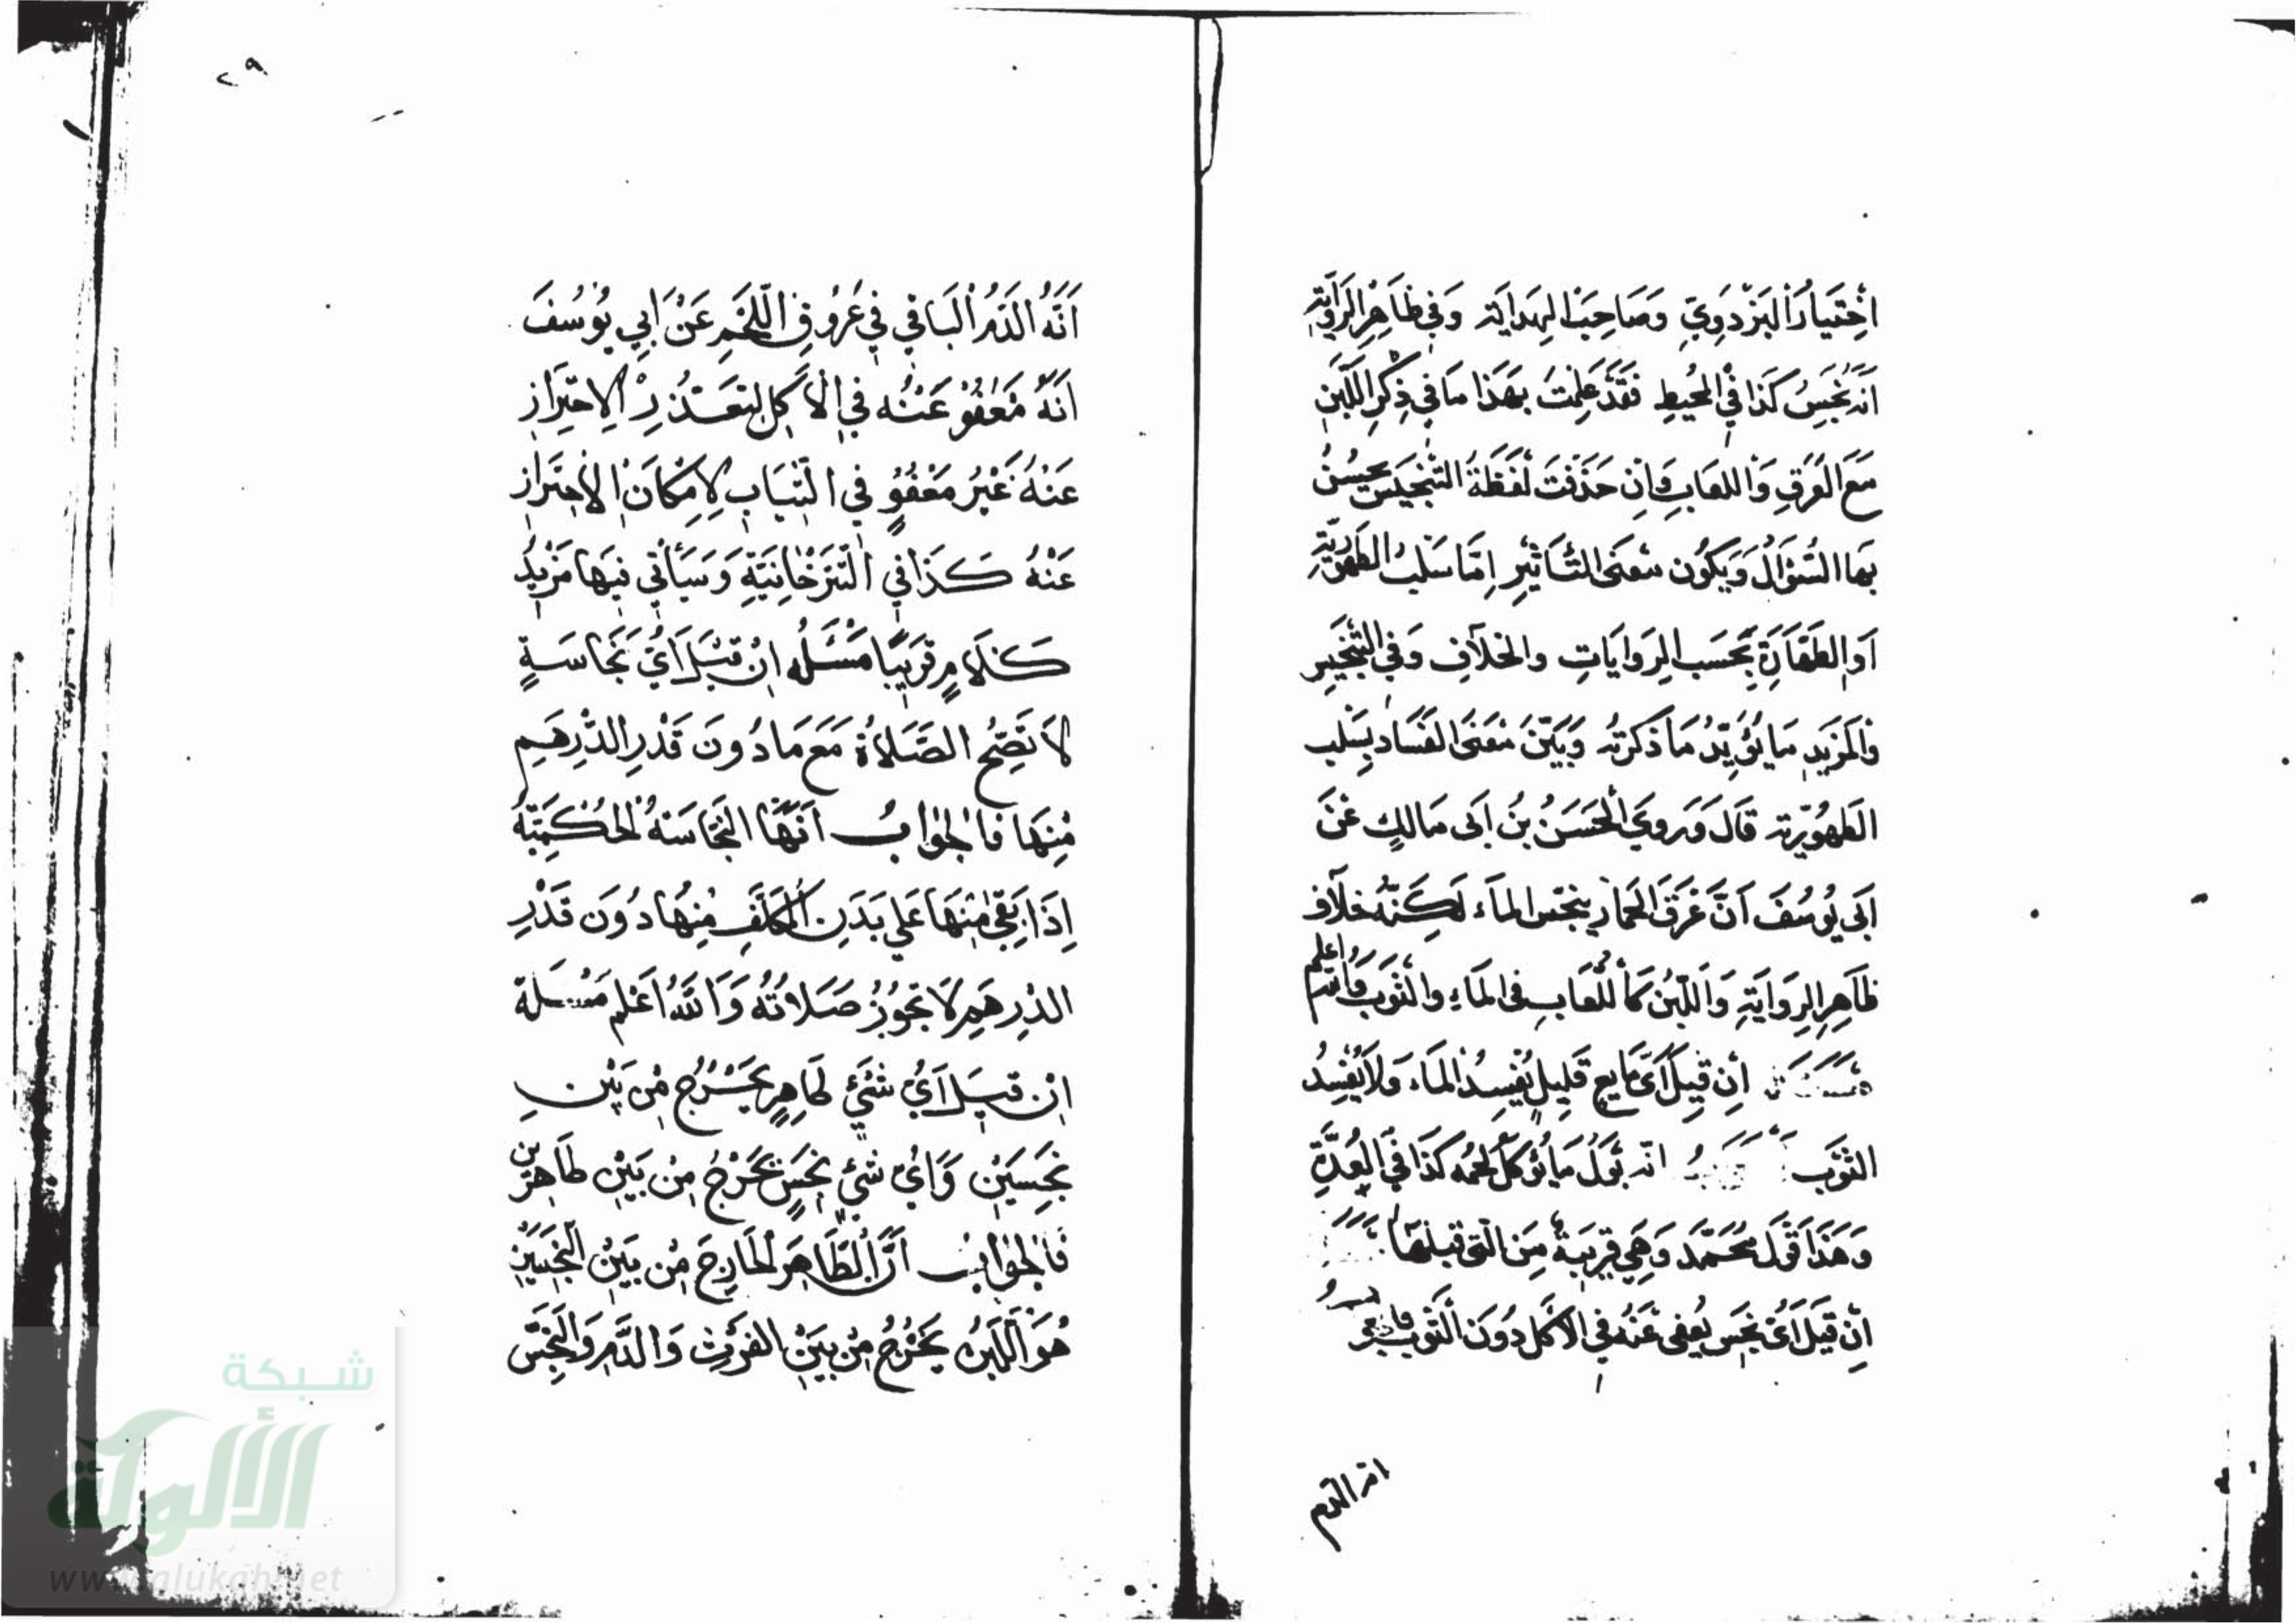 اختيار البزدوي وصاحب الهداية وفي ظاهر الرواية
انه نجس كذا في المحيط فقد علمت بهذا ما في ذكر اللبن
مع العرق واللعاب وان حذفت لفظة التنجيس يحسن
بها السؤال ويكون معنى التأثير اما سلب الطهورية
او الطهارة بحسب الروايات والخلاف وفي التجنيس
والمزيد ما يؤيد ما ذكرته وبين معنى الفساد بسلب
الطهورية قال وروي الحسن بن ابى مالك عن
ابى يوسف ان عرق الحمار ينجس الماء لكنه خلاف
ظاهر الرواية واللبن كاللعاب فى الماء والثوب والله اعلم
ان قيل اى مايع قليل يفسد الماء ولا يفسد
الثوب انه بول ما يؤكل لحمه كذا في العدة
وهذا قول محمد وهي قريبة من التى قبلها
ان قيل اى نجس يعفى عنه في الاكل دون الثوب
انه الدم
٢٩
انه الدم الباقي في عروق اللحم عن ابي يوسف
انه معفو عنه في الاكل لتعذر الاحتراز
عنه غير معفو في الثياب لامكان الاحتراز
عنه كذا في التترخانية وسيأتي فيها مزيد
كلام قريبا مسئله ان قيل اي نجاسة
لا تصح الصلاة مع ما دون قدر الدرهم
منها فالجواب انها النجاسة الحكمية
اذا بقي منها على بدن المكلف منها دون قدر
الدرهم لا تجوز صلاته والله اعلم مسئلة
ان قيل اي شئ طاهر يخرج من بين
نجسين واي شئ نجس يخرج من بين طاهرين
فالجواب ان الطاهر الخارج من بين النجسين
هو اللبن يخرج من بين الفرث والدم والنجس
شبكة
الألوكة
www.alukah.net